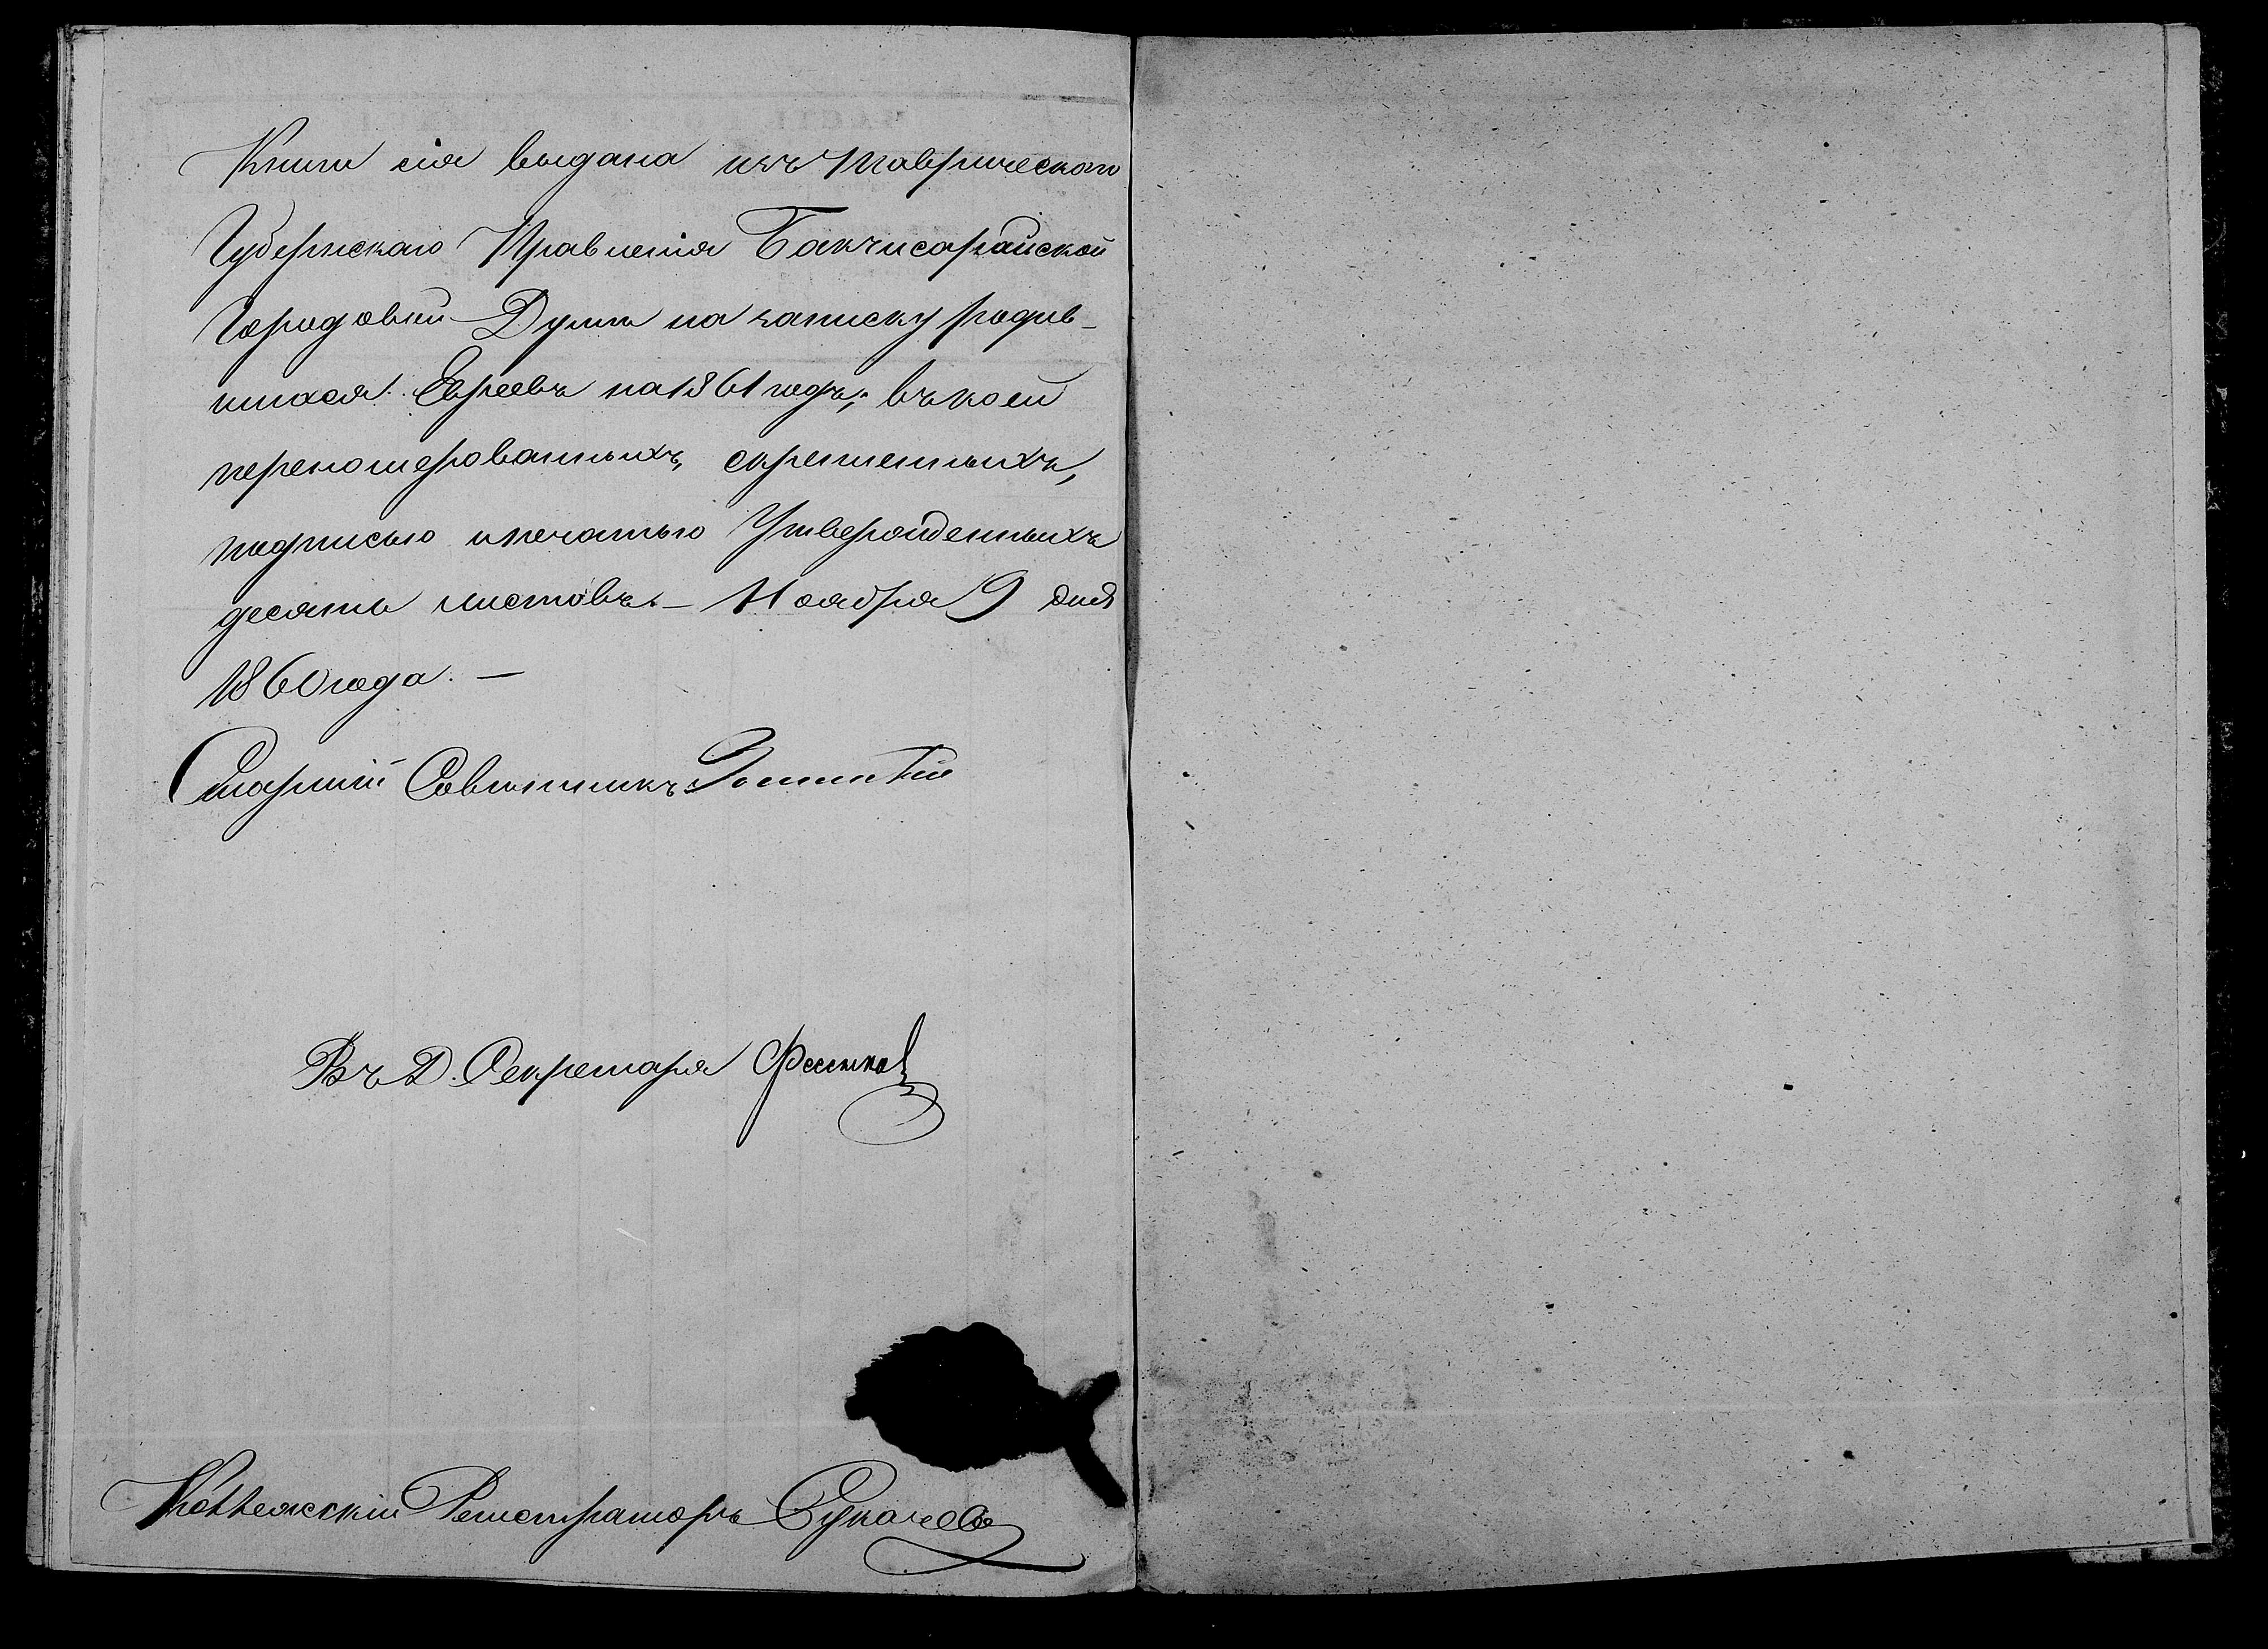 Книга сія выдана изъ Таврическаго
Губернскаго Правленія Бакчисарайской
Городовой Думѣ на записку родив-
шихся Евреевъ на 1861 годъ; въ коей
переномерованныхъ, скрепленныхъ,
подписью и печатью Утвержденныхъ
десять листовъ. – Ноября 9 дня
1860 года. —
Старшій Совѣтникъ
Въ Д. Секретаря
Коллежскій Регистраторъ Сукачевъ